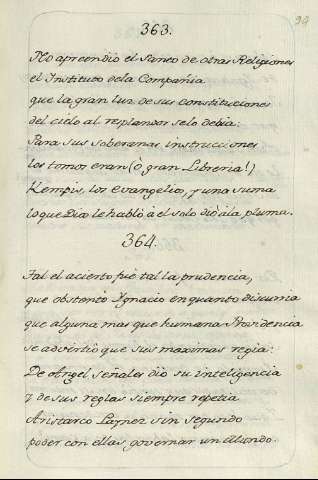 363.
94
No aprendió el Santo de otras Religiones
el Instituto dela Compañia
que la gran luz de sus constituciones
del cielo al resplandor selo debia:
Para sus soberanas instrucciones
los tomos eran (ò gran Libreria!)
Kempis, los evangelios, y una suma
lo que Dios le habló à el solo dió á la pluma.
364.
Tal el acierto fué tal la prudencia,
que obstentó Ygnacio en quanto discurria
que alguna mas que humana Providencia
se advertió que sus maximas regia:
De Angel señales dio su inteligencia
y de sus reglas siempre repetia
Aristarco Laynez sin segundo
poder con ellas governar un Mundo.